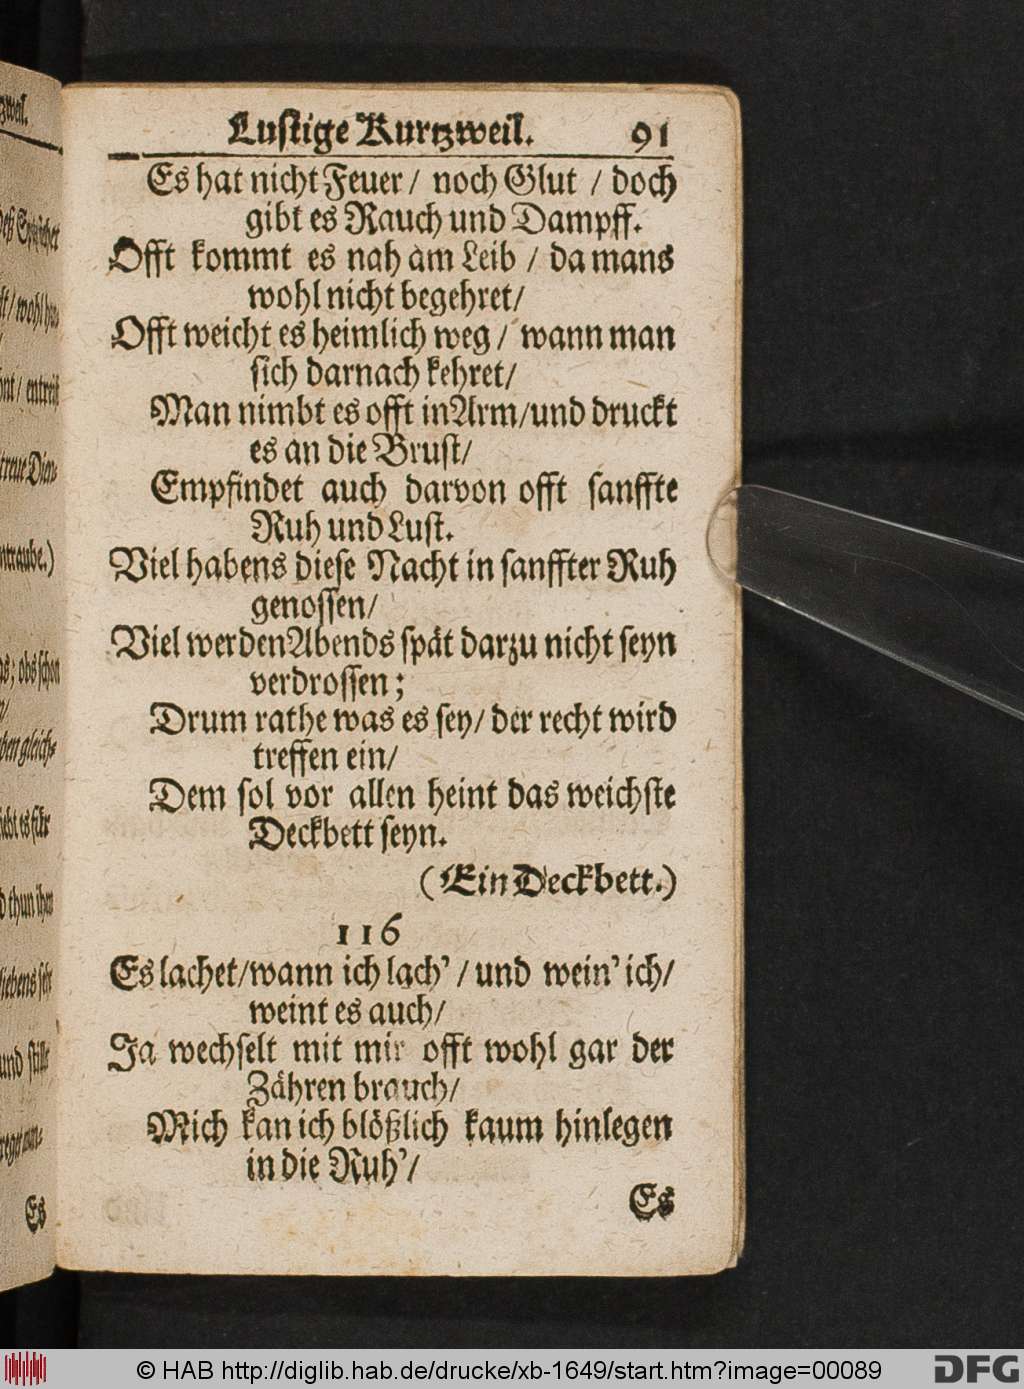 Lustige Kurtzweil. 91
Es hat nicht Feuer / noch Glut / doch
gibt es Rauch und Dampff.
Offt kommt es nah am Leib / da mans
wohl nicht begehret/
Offt weicht es heimlich weg / wann man
sich darnach kehret/
Man nimbt es offt in Arm/und druckt
es an die Brust/
Empfindet auch darvon offt sanffte
Ruh und Lust.
Viel habens diese Nacht in sanffter Ruh
genossen/
Viel werden Abends spät darzu nicht seyn
verdrossen;
Drum rathe was es sey/ der recht wird
treffen ein/
Dem sol vor allen heint das weichste
Deckbett seyn.
(Ein Deckbett.)
116
Es lachet/wann ich lach' / und wein' ich/
weint es auch/
Ja wechselt mit mir offt wohl gar der
Zähren brauch/
Mich kan ich blößlich kaum hinlegen
in die Ruh'/
Es
zweil.
/ wohl
/ entreiß
treue Die-
ntraube.)
as; obs schon
ben gleich-
d thun ihm
liebens sehr
und stille
Es
© HAB http://diglib.hab.de/drucke/xb-1649/start.htm?image=00089
DFG